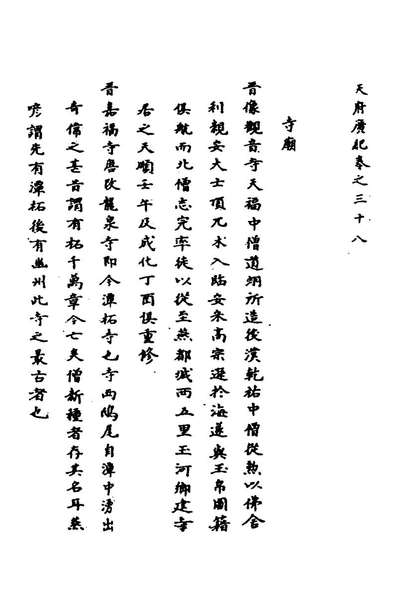 天府廣記卷之三十八
寺廟
晉像觀音寺天福中僧道翊所造後漢乾祐中僧從勲以佛舍
利親安大士頂兀术入臨安宋高宗遜於海遂與玉帛圖籍
俱航而北僧志完率徒以從至燕都城西五里玉河鄉建寺
居之天順壬午及成化丁酉俱重修
晉嘉福寺唐改龍泉寺即今潭柘寺也寺兩鴟尾自潭中湧出
奇偉之甚昔謂有柘千萬章今亡矣僧新種者存其名耳燕
諺謂先有潭柘後有幽州此寺之最古者也